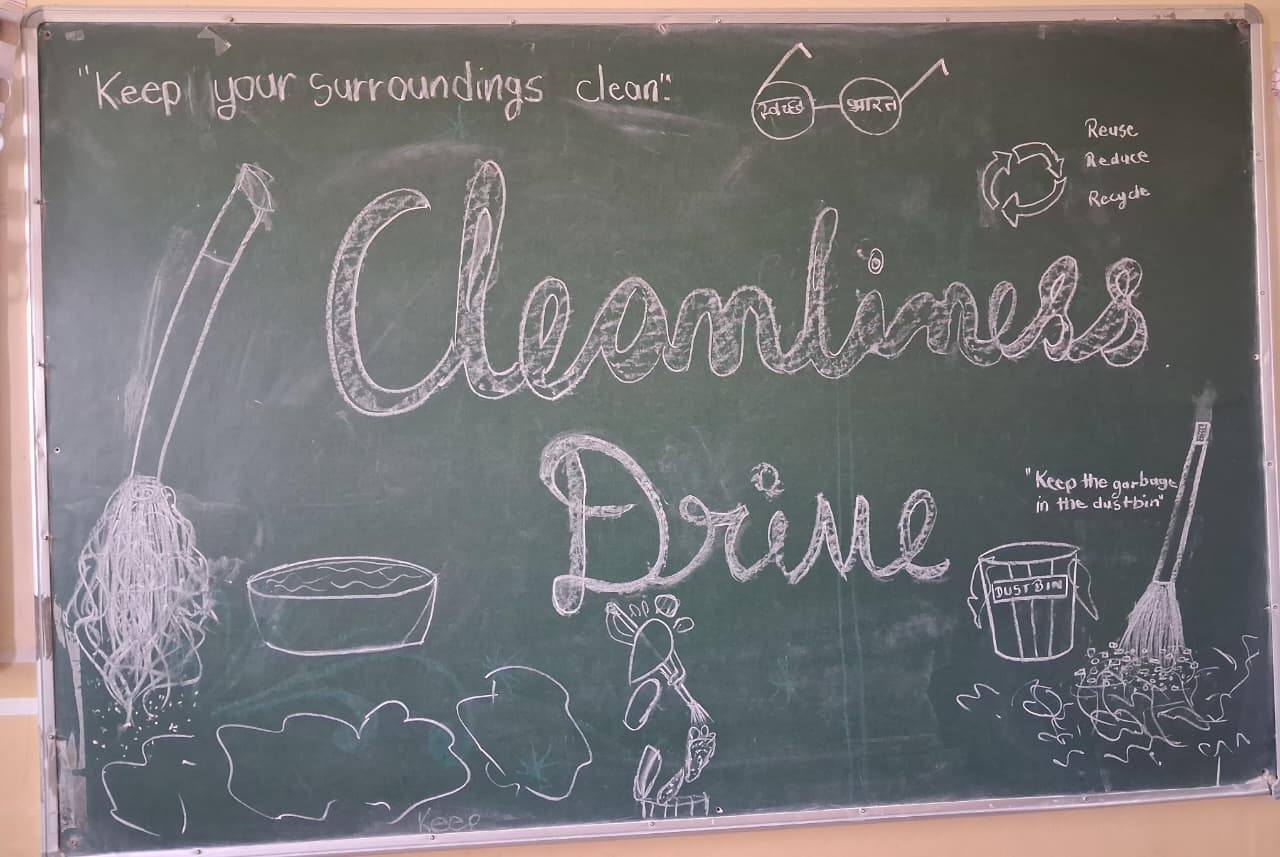 "Keep your surroundings clean".
स्वच्छ भारत
Reuse
Reduce
Recycle
Cleanliness
Drive
"Keep the garbage
in the dustbin"
DUSTBIN
Keep